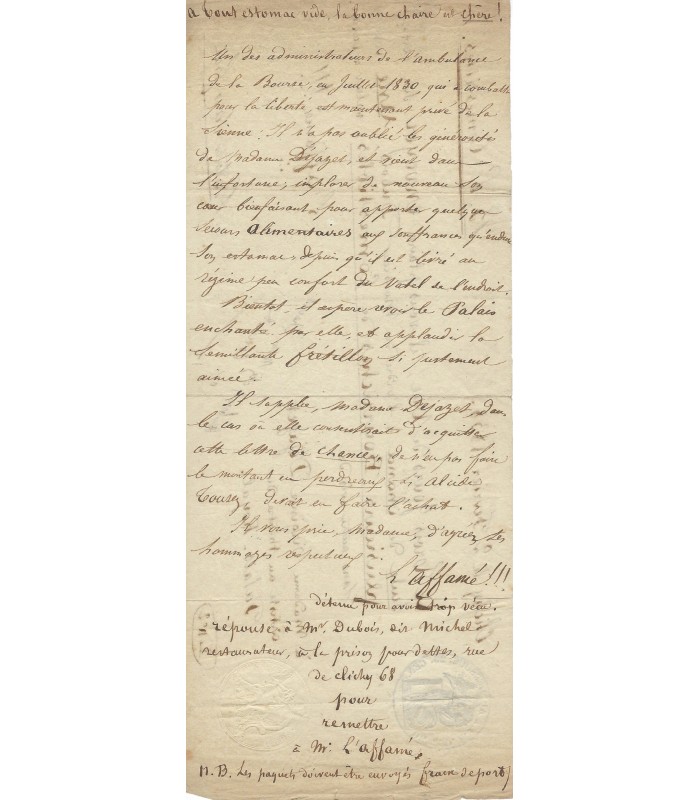 a tout estomac vide, la bonne chaire est chère!
Un des administrateurs de l'ambulance
de la Bourse, en Juillet 1830, qui a combattu
pour la liberté, est maintenant privé de la
Sienne. Il n'a pas oublié les générosités
de madame Déjazet, et vient dans
l'infortune, implorer de nouveau son
cœur bienfaisant pour apporter quelques
secours alimentaires aux souffrances qu'endure
son estomac depuis qu'il est livré au
régime peu confort du Vatel de l'endroit.
Bientôt, il espère revoir le Palais
enchanté par elle, et applaudir la
semillante frétillon si justement
aimée.
Il supplie, madame Dejazet, dans
le cas où elle consentirait d'acquitter
cette lettre de chance, de n'en pas faire
le montant en perdreaux si alcide
Tousez devait en faire l'achat.
Il vous prie, madame, d'agréer ses
hommages respectueux.
L'affamé!!!
détenu pour avoir trop vécu.
réponse à Mr. Dubois, dit Michel
restaurateur, à la prison pour dettes, rue
de clichy 68
pour
remettre
à Mr. L'affamé,
N.B. Les paquets doivent être envoyés franc de port